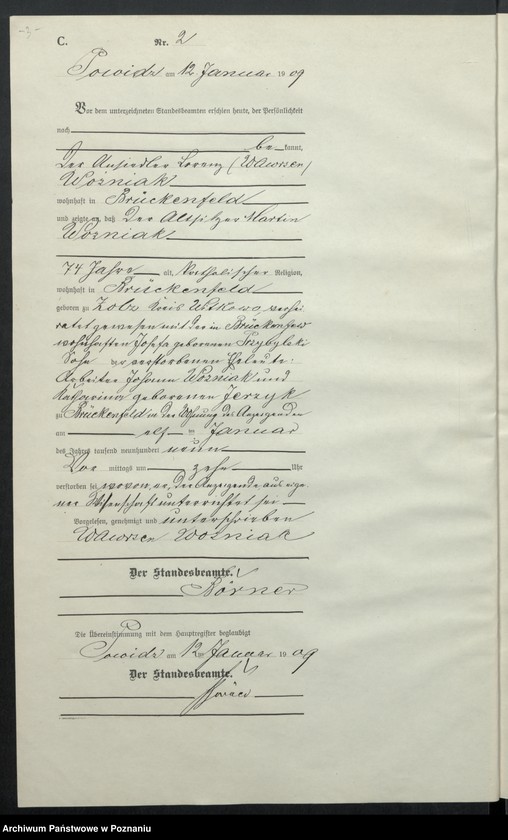 -3-
C. Nr. 2
Powidz am 12 Januar 1909
Vor dem unterzeichneten Standesbeamten erschien heute, der Persönlichkeit
nach
be kannt,
Der Ansiedler Lorenz (Wawrzen)
Woźniak
wohnhaft in Brückenfeld
und zeigte an, daß Der Altsitzer Martin
Woźniak
74 Jahre alt, katholischer Religion,
wohnhaft in Brückenfeld
geboren zu Kreis Witkowo, verhei
ratet gewesen mit der in Brückenfeld
wohnhaften Josefa geborenen Przybylska
Sohn der verstorbenen Eheleute:
Arbeiter Johann Woźniak und
Katharina geborenen Jerzyk
zu Brückenfeld in der Wohnung des Anzeigenden
am elf ten Januar
des Jahres tausend neunhundert neun
Vor mittags um zehn Uhr
verstorben sei, wovon er, der Anzeigende aus eige
ner Wissenschaft unterrichtet sei
Vorgelesen, genehmigt und unterschrieben
Wawrzen Woźniak
Der Standesbeamte.
Börner
Die Übereinstimmung mit dem Hauptregister beglaubigt
Powidz am 12ten Januar 1909
Der Standesbeamte.
Börner
Archiwum Państwowe w Poznaniu